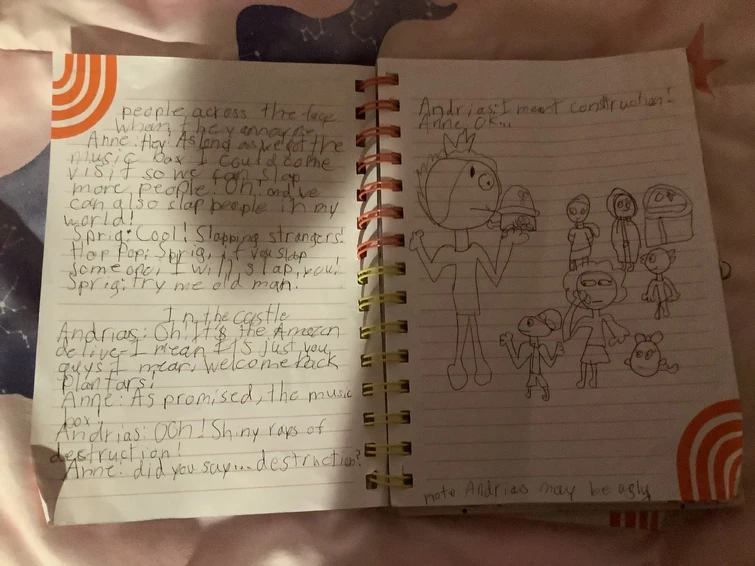 people across the face
when they annoy me
Anne: Hey! As long as we got the
music box I could come
visit so we can slap
more people! Oh, and we
can also slap people in my
world!
Sprig: Cool! Slapping strangers!
Hop Pop: Sprig, if you slap
someone, I will slap, you!
Sprig: try me old man.
In the castle
Andrias: Oh! It's the Amazon
delive- I mean it's just you
guys I mean, welcome back
plantars!
Anne: As promised, the music
box!
Andrias: Ooh! Shiny rays of
destruction!
Anne: did you say... destruction?
Andrias: I meant construction!
Anne: OK...
note Andrias may be ugly